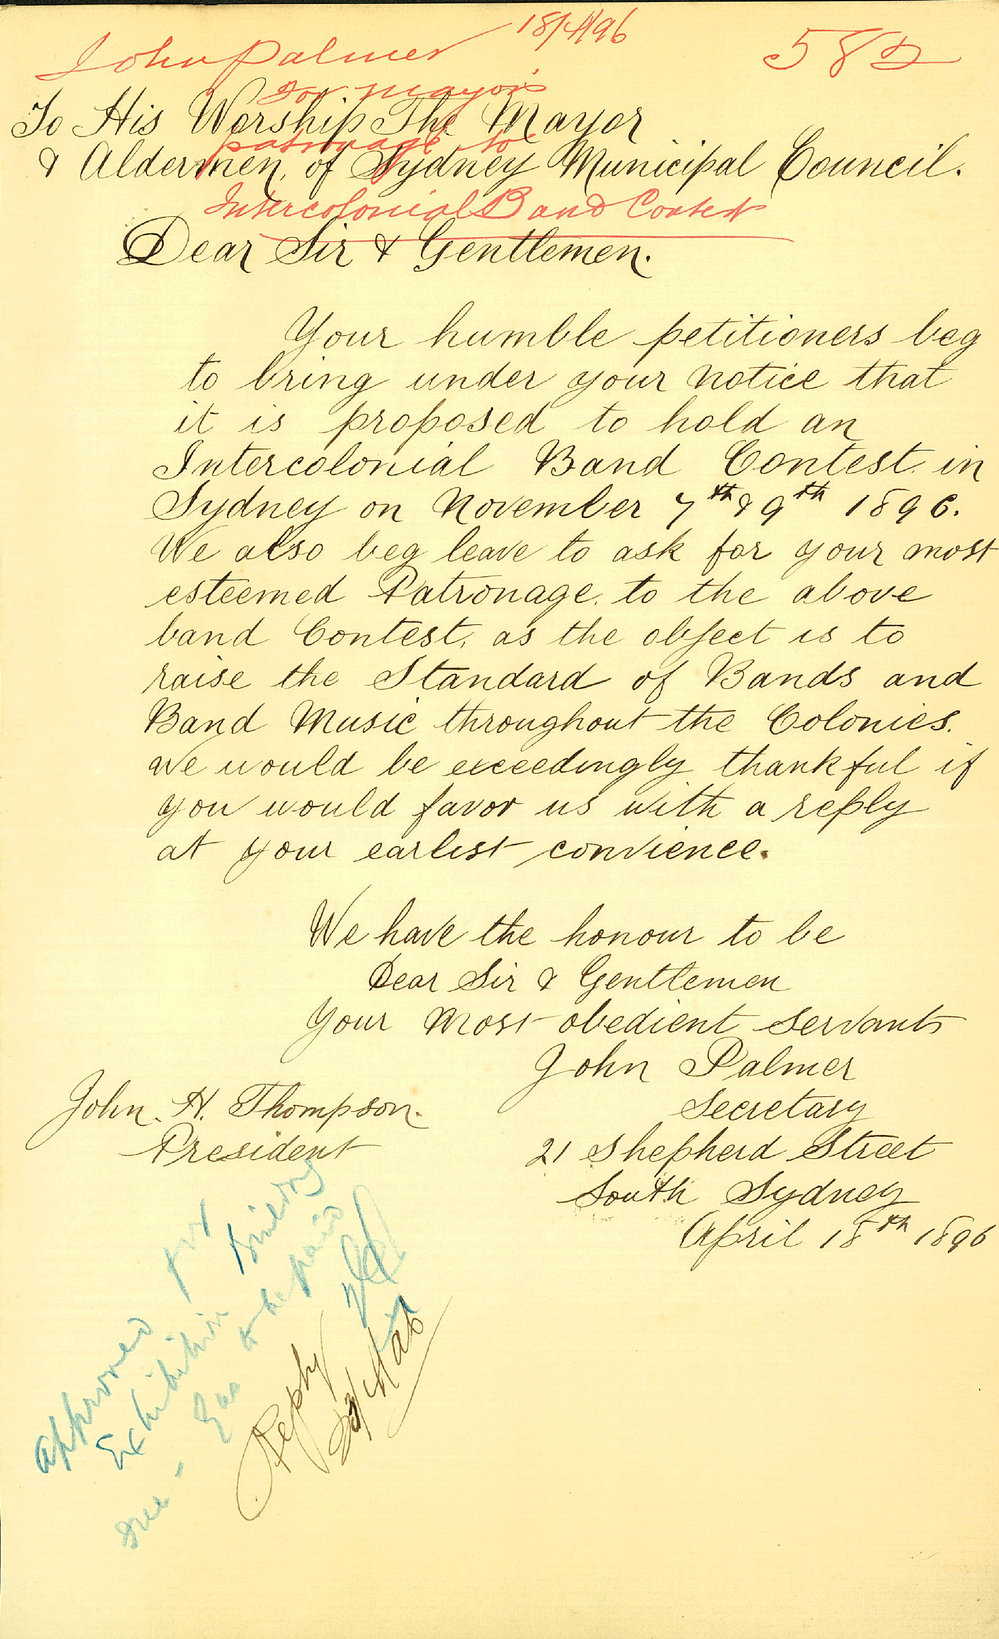 John Palmer 18/4/96 582
for Mayor's
patronage to
Intercolonial Band Contest
To His Worship The Mayor
& Aldermen, of Sydney Municipal Council.
Dear Sir & Gentlemen.
Your humble petitioners beg
to bring under your notice that
it is proposed to hold an
Intercolonial Band Contest in
Sydney on November 7th & 9th 1896.
We also beg leave to ask for your most
esteemed Patronage. to the above
band Contest, as the object is to
raise the Standard of Bands and
Band Music throughout the Colonies.
we would be exceedingly thankful if
you would favor us with a reply
at your earlest convience.
We have the honour to be
Dear Sir & Gentlemen
Your Most obedient servants
John Palmer
Secretary
21 Shepherd Street
South Sydney
April 18th 1896
John. H. Thompson.
President
Approved for
Exhibition building
free - Gas to be paid
Reply